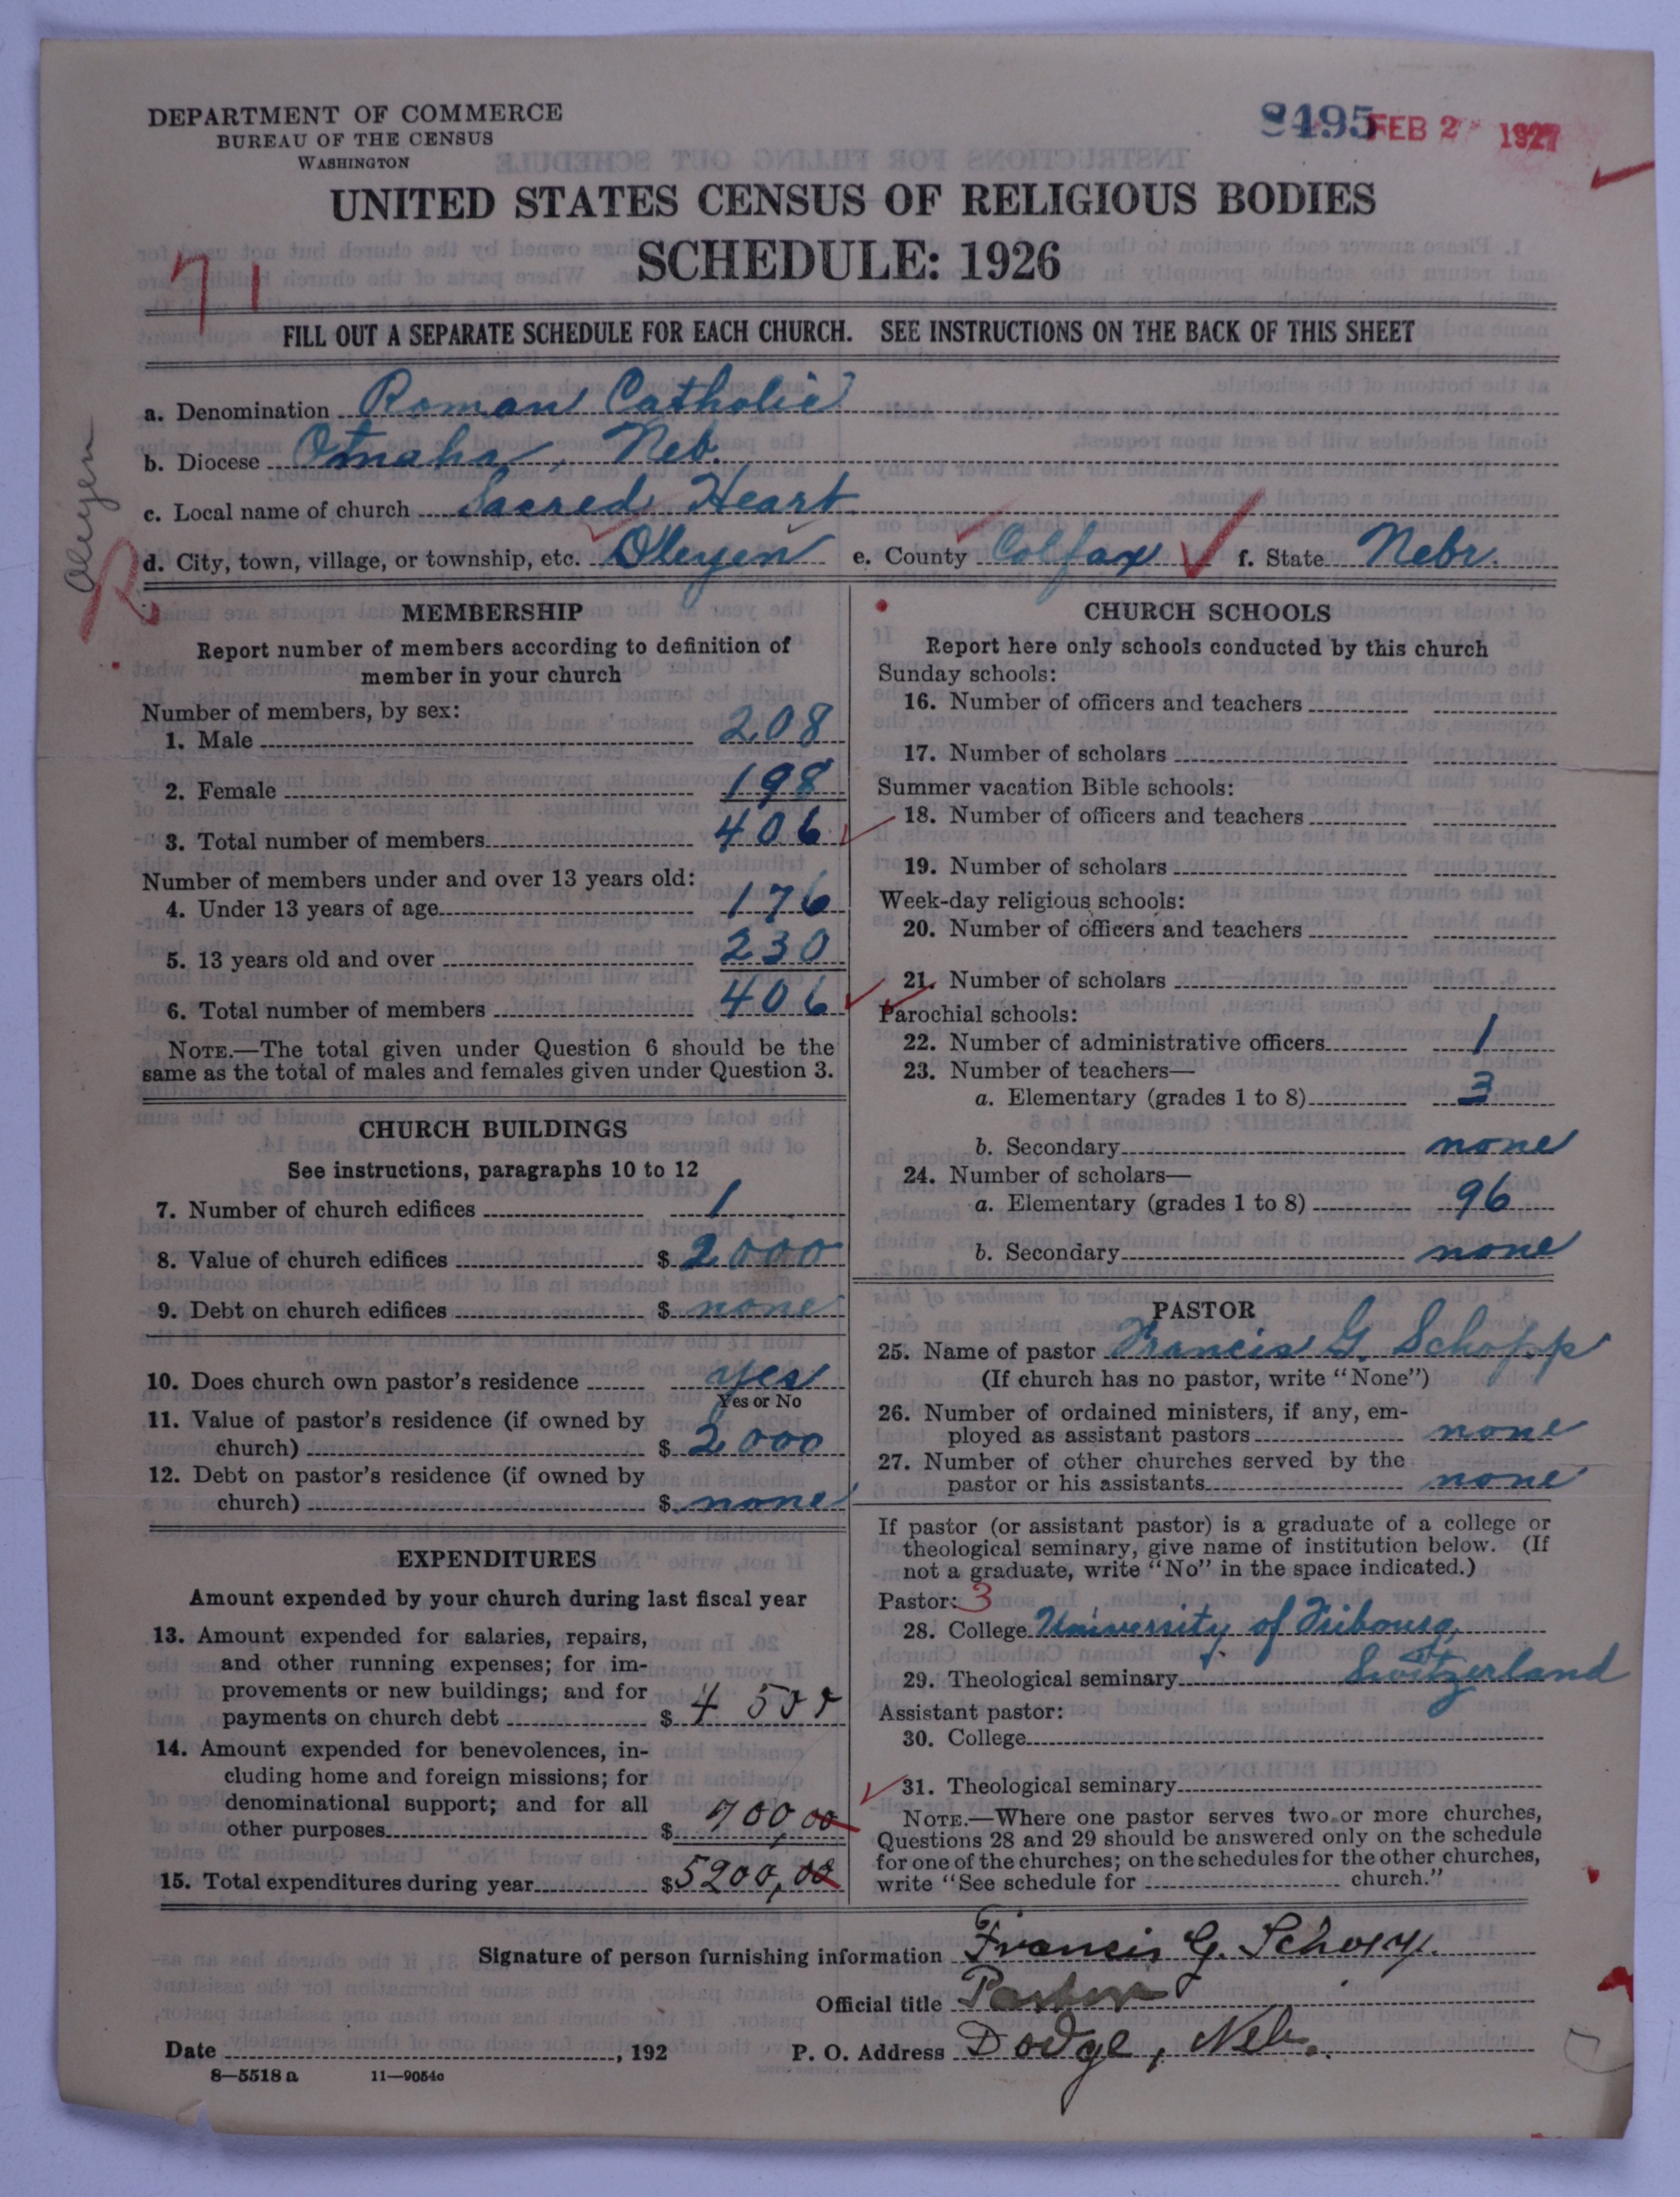 DEPARTMENT OF COMMERCE
BUREAU OF THE CENSUS
WASHINGTON
8495 FEB 2 1927
UNITED STATES CENSUS OF RELIGIOUS BODIES
SCHEDULE: 1926
71
FILL OUT A SEPARATE SCHEDULE FOR EACH CHURCH. SEE INSTRUCTIONS ON THE BACK OF THIS SHEET
a. Denomination Roman Catholic
b. Diocese Omaha, Neb.
c. Local name of church Sacred Heart
d. City, town, village, or township, etc. Oleyen e. County Colfax f. State Nebr.
Oleyen
MEMBERSHIP
Report number of members according to definition of
member in your church
Number of members, by sex:
1. Male 208
2. Female 198
3. Total number of members 406
Number of members under and over 13 years old:
4. Under 13 years of age 176
5. 13 years old and over 230
6. Total number of members 406
NOTE.—The total given under Question 6 should be the
same as the total of males and females given under Question 3.
CHURCH BUILDINGS
See instructions, paragraphs 10 to 12
7. Number of church edifices 1
8. Value of church edifices $ 2000
9. Debt on church edifices $ none
10. Does church own pastor's residence yes
Yes or No
11. Value of pastor's residence (if owned by
church) $ 2000
12. Debt on pastor's residence (if owned by
church) $ none
EXPENDITURES
Amount expended by your church during last fiscal year
13. Amount expended for salaries, repairs,
and other running expenses; for im-
provements or new buildings; and for
payments on church debt $ 4 500
14. Amount expended for benevolences, in-
cluding home and foreign missions; for
denominational support; and for all
other purposes $ 700,00
15. Total expenditures during year $5200,00
CHURCH SCHOOLS
Report here only schools conducted by this church
Sunday schools:
16. Number of officers and teachers
17. Number of scholars
Summer vacation Bible schools:
18. Number of officers and teachers
19. Number of scholars
Week-day religious schools:
20. Number of officers and teachers
21. Number of scholars
Parochial schools:
22. Number of administrative officers 1
23. Number of teachers—
a. Elementary (grades 1 to 8) 3
b. Secondary none
24. Number of scholars—
a. Elementary (grades 1 to 8) 96
b. Secondary none
PASTOR
25. Name of pastor Francis G. Schopp
(If church has no pastor, write "None")
26. Number of ordained ministers, if any, em-
ployed as assistant pastors none
27. Number of other churches served by the
pastor or his assistants none
If pastor (or assistant pastor) is a graduate of a college or
theological seminary, give name of institution below. (If
not a graduate, write "No" in the space indicated.)
Pastor: 3
28. College University of Fribourg,
29. Theological seminary Switzerland
Assistant pastor:
30. College
31. Theological seminary
NOTE.—Where one pastor serves two or more churches,
Questions 28 and 29 should be answered only on the schedule
for one of the churches; on the schedules for the other churches,
write "See schedule for church."
Signature of person furnishing information Francis G. Schopp.
Official title Pastor
Date , 192 P. O. Address Dodge, Neb.
8—5518 a 11—9054c